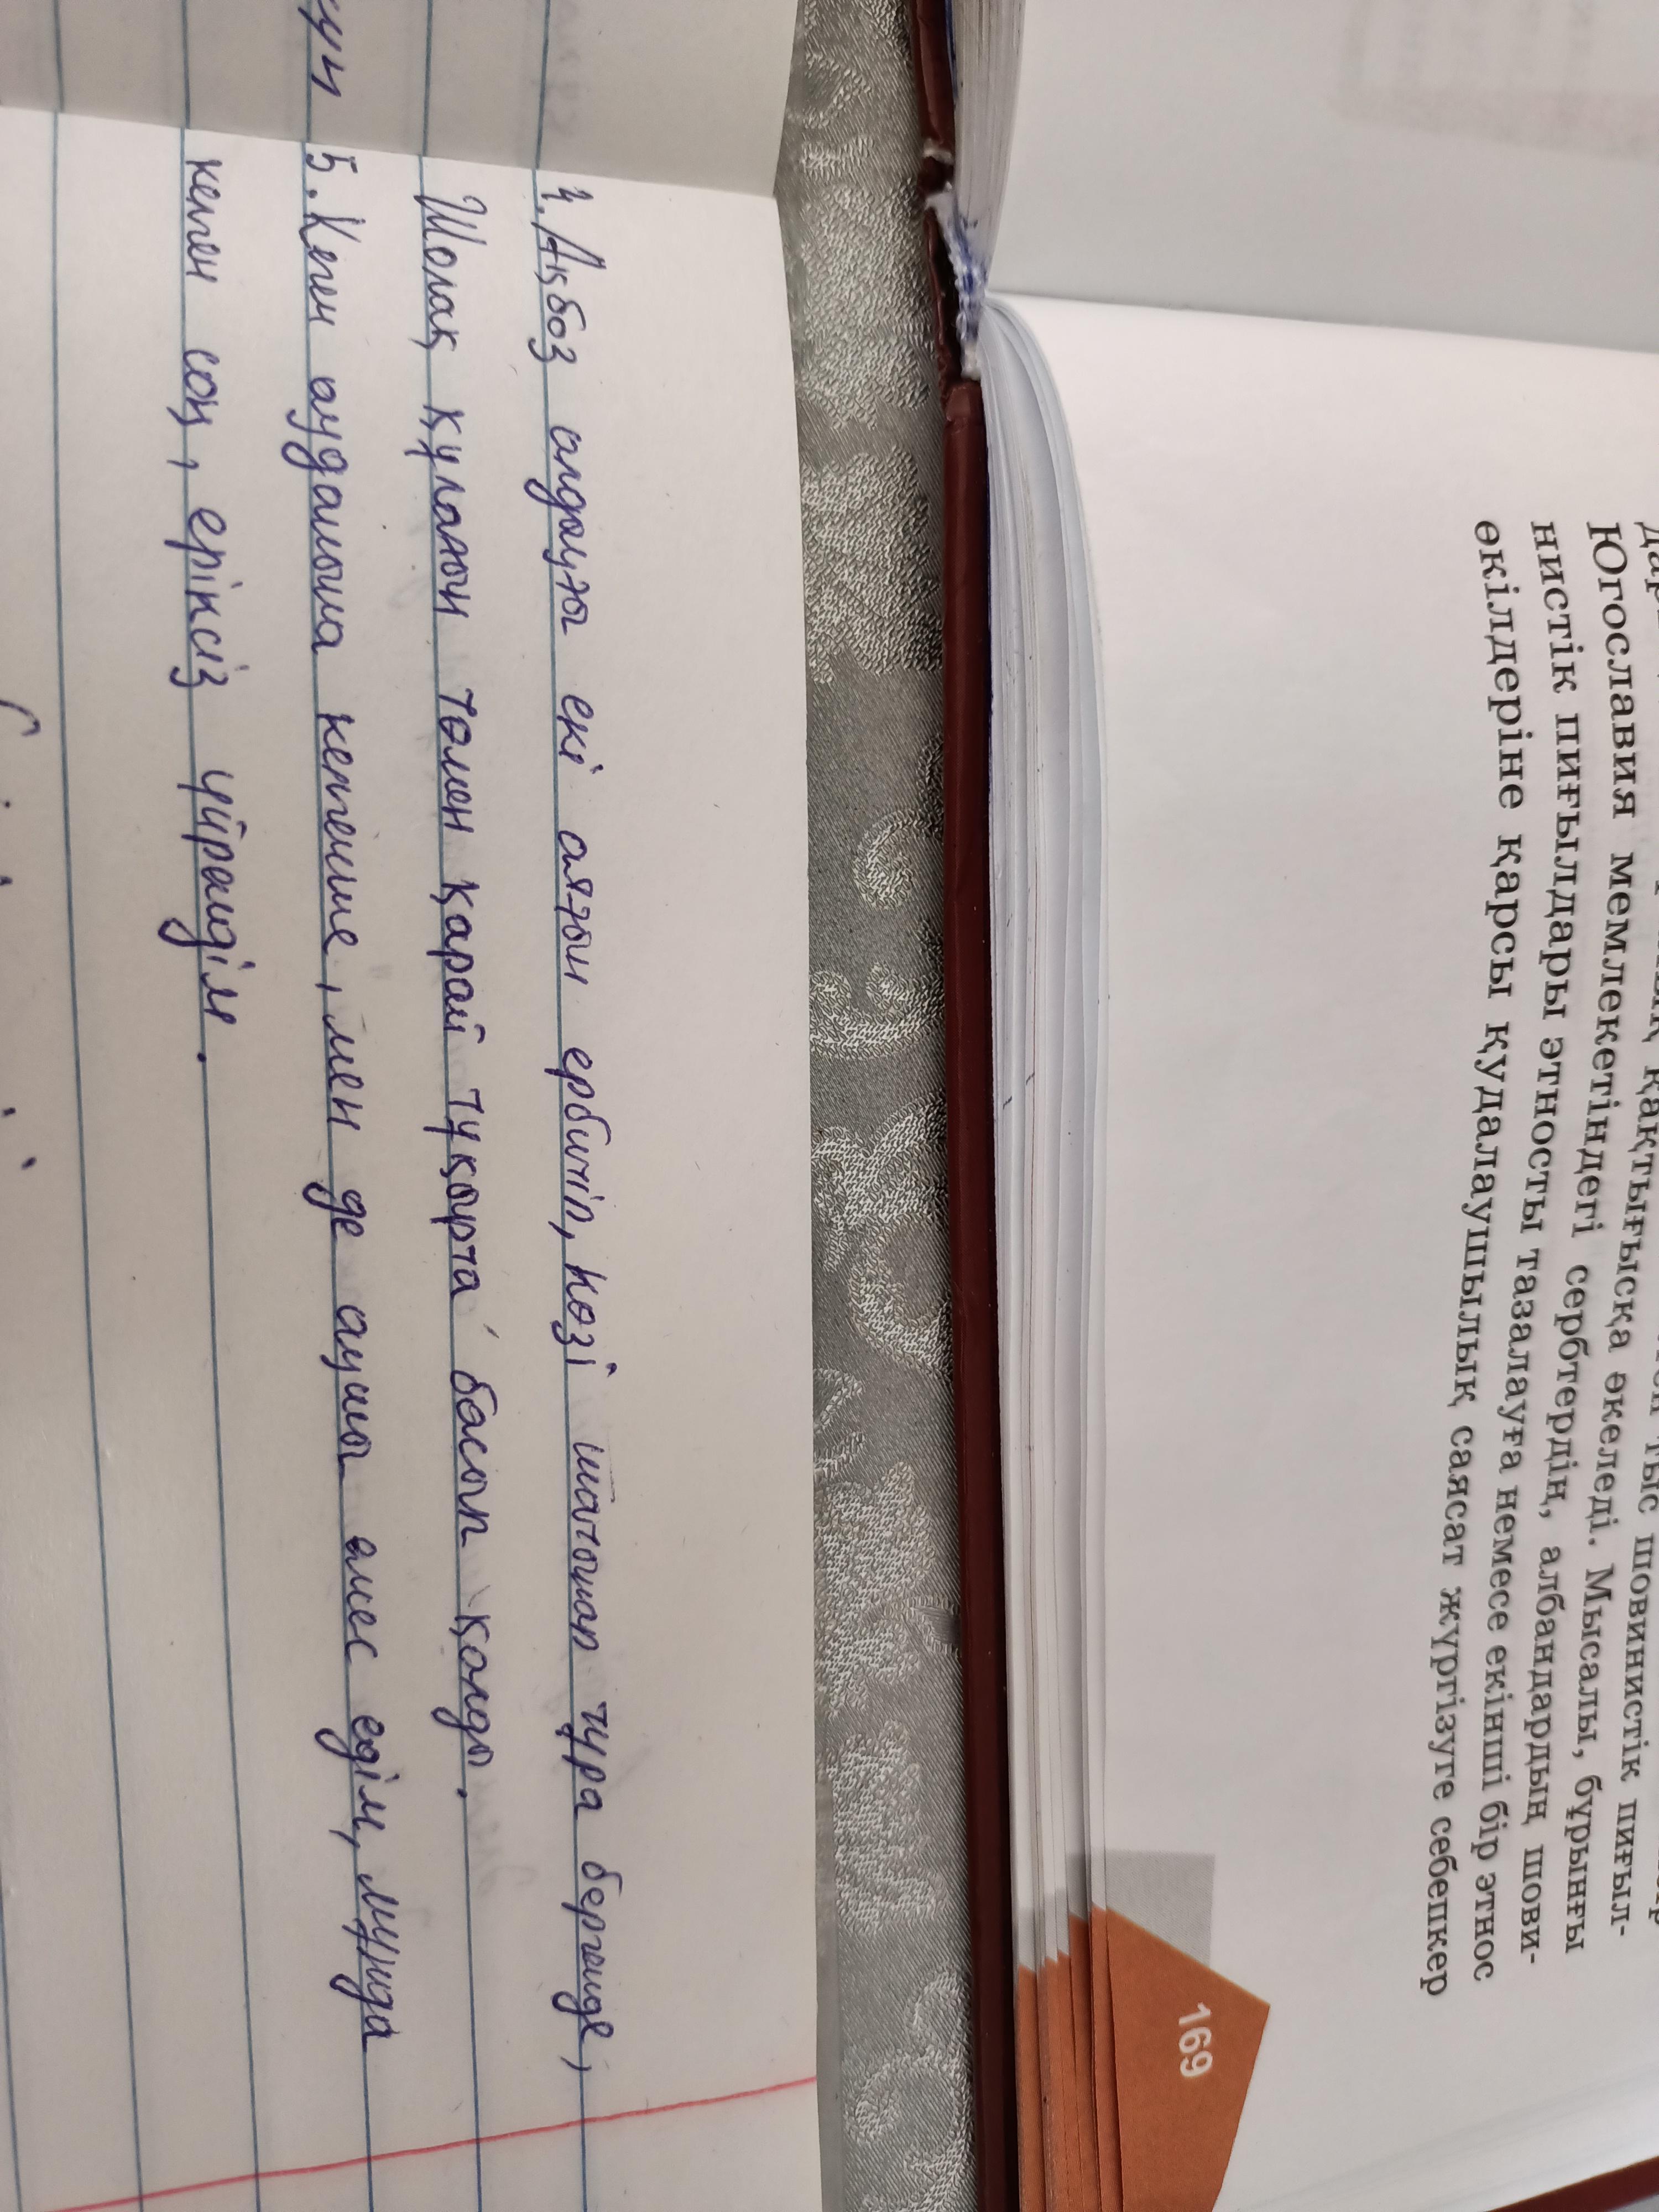 Югославия мемлекетіндегі сербтердің, албандардың шови-
нистік пиғылдары этносты тазалауға немесе екінші бір этнос
өкілдеріне қарсы қудалаушылық саясат жүргізуге себепкер
169
4. Ақбоз алдыңғы екі аяғын ербиңіп, көзі шатынап тұра бергенде,
Шолақ құлағын төмен қарай тұқырта басып қалды.
5. Кеген ауданына келгенше, мен де аңшы емес едім, мұнда
келген соң, еріксіз үйрендім.